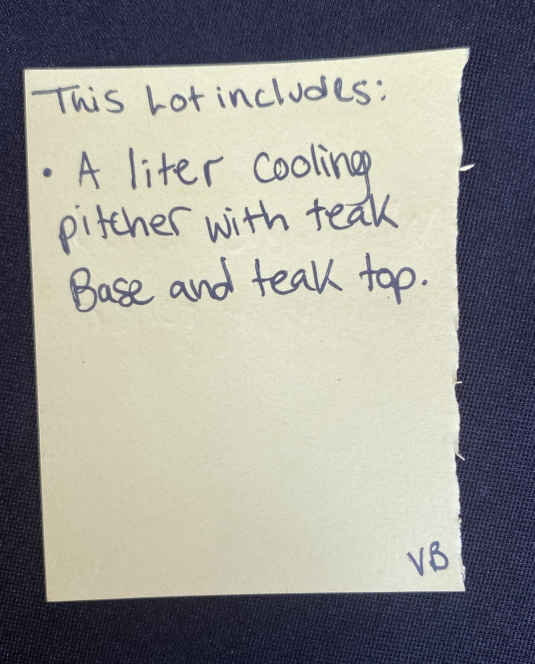 This Lot includes:
• A liter cooling
pitcher with teak
Base and teak top.
VB